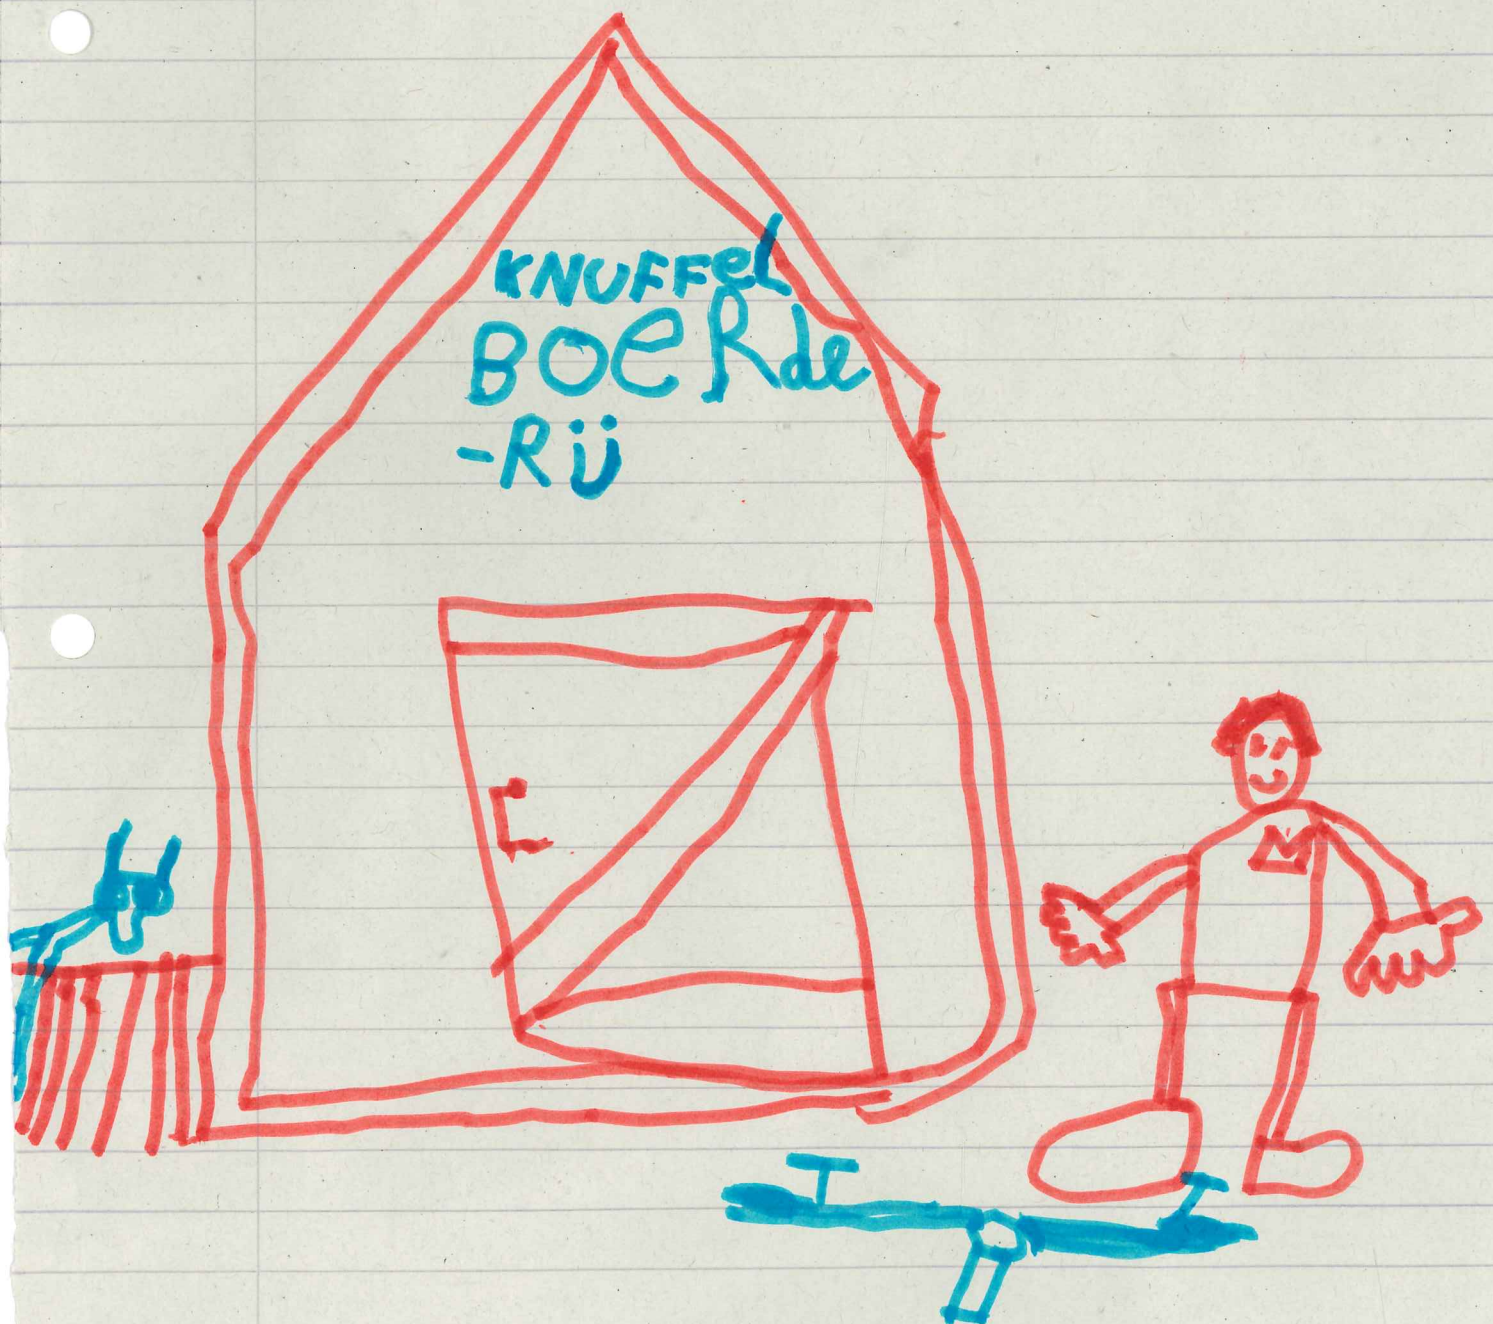 KNUFFeL
BOeRde
-Rij